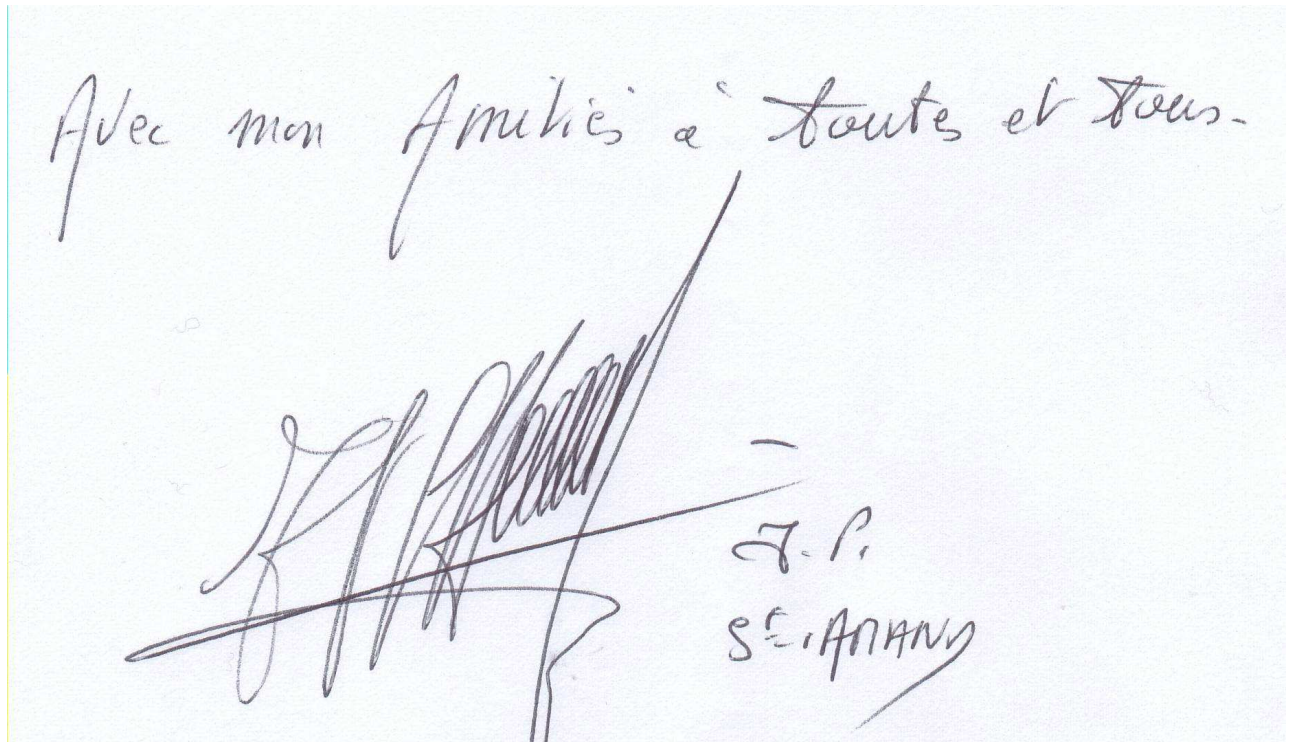 Avec mon Amitiés à toutes et tous.
J.P.
St. AMAND